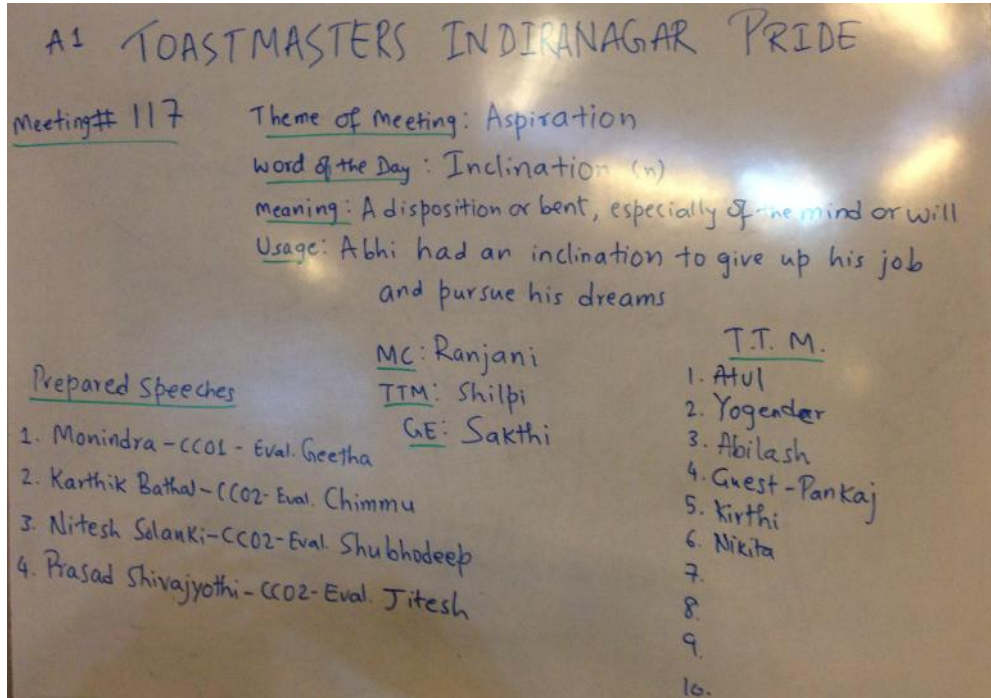 A1 TOASTMASTERS INDIRANAGAR PRIDE
Meeting# 117
Theme of Meeting: Aspiration
Word of the Day: Inclination (n)
Meaning: A disposition or bent, especially of the mind or will
Usage: Abhi had an inclination to give up his job
and pursue his dreams
MC: Ranjani
TTM: Shilpi
GE: Sakthi
Prepared Speeches
1. Monindra-CC01 - Eval. Geetha
2. Karthik Bathal-CC02-Eval. Chimmu
3. Nitesh Solanki-CC02-Eval. Shubhodeep
4. Prasad Shivajyothi-CC02-Eval. Jitesh
T.T. M.
1. Atul
2. Yogender
3. Abilash
4. Guest-Pankaj
5. Kirthi
6. Nikita
7.
8.
9.
10.